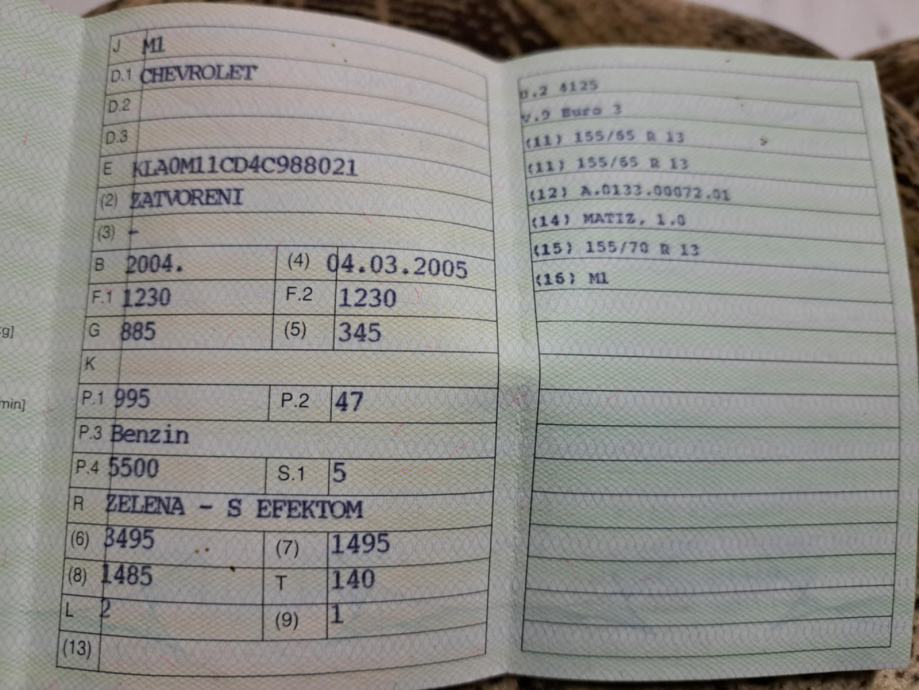 J M1
D.1 CHEVROLET
D.2
D.3
E KLA0M11CD4C988021
(2) ZATVORENI
(3) -
B 2004. (4) 04.03.2005
F.1 1230 F.2 1230
G 885 (5) 345
K
P.1 995 P.2 47
P.3 Benzin
P.4 5500 S.1 5
R ZELENA - S EFEKTOM
(6) 3495 (7) 1495
(8) 1485 T 140
L 2 (9) 1
(13)
g]
min]
4125
V.9 Euro 3
(11) 155/65 R 13
(11) 155/65 R 13
(12) A.0133.00072.01
(14) MATIZ, 1.0
(15) 155/70 R 13
(16) M1